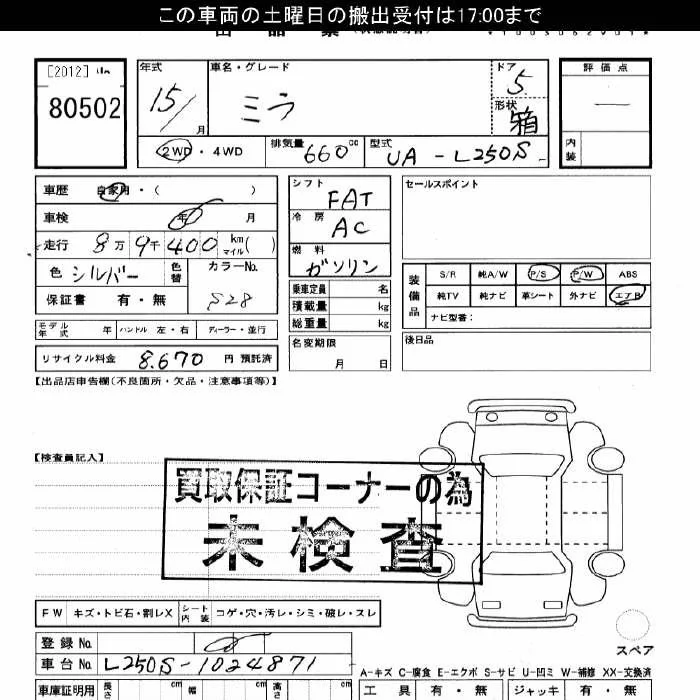 この車両の土曜日の搬出受付は17:00まで
[2012]
80502
年式
15/
月
車名・グレード
ミラ
ドア
5
形状
箱
評価点
内装
2WD・4WD
排気量 660 cc
型式 UA-L250S
車歴 自家用・( )
車検 年 月
走行 8万9千400 km マイル( )
色 シルバー
色替
カラーNo.
S28
保証書 有・無
シフト
FAT
冷房
AC
燃料
ガソリン
乗車定員 名
積載量 kg
総重量 kg
セールスポイント
装備品
S/R 純A/W P/S P/W ABS
純TV 純ナビ 革シート 外ナビ エアB
ナビ型番:
モデル年式 年 ハンドル 左・右 ディーラー・並行
名変期限
月 日
後日品
リサイクル料金 8.670 円 預託済
【出品店申告欄(不良箇所・欠品・注意事項等)】
【検査員記入】
買取保証コーナーの為
未検査
FW キズ・トビ石・割レX シート内装 コゲ・穴・汚レ・シミ・破レ・スレ
スペア
登録No.
車台No. L250S-1024871
A-キズ C-腐食 E-エクボ S-サビ U-凹ミ W-補修 XX-交換済
車庫証明用 長さ cm 幅 cm 高さ cm
工具 有・無 ジャッキ 有・無